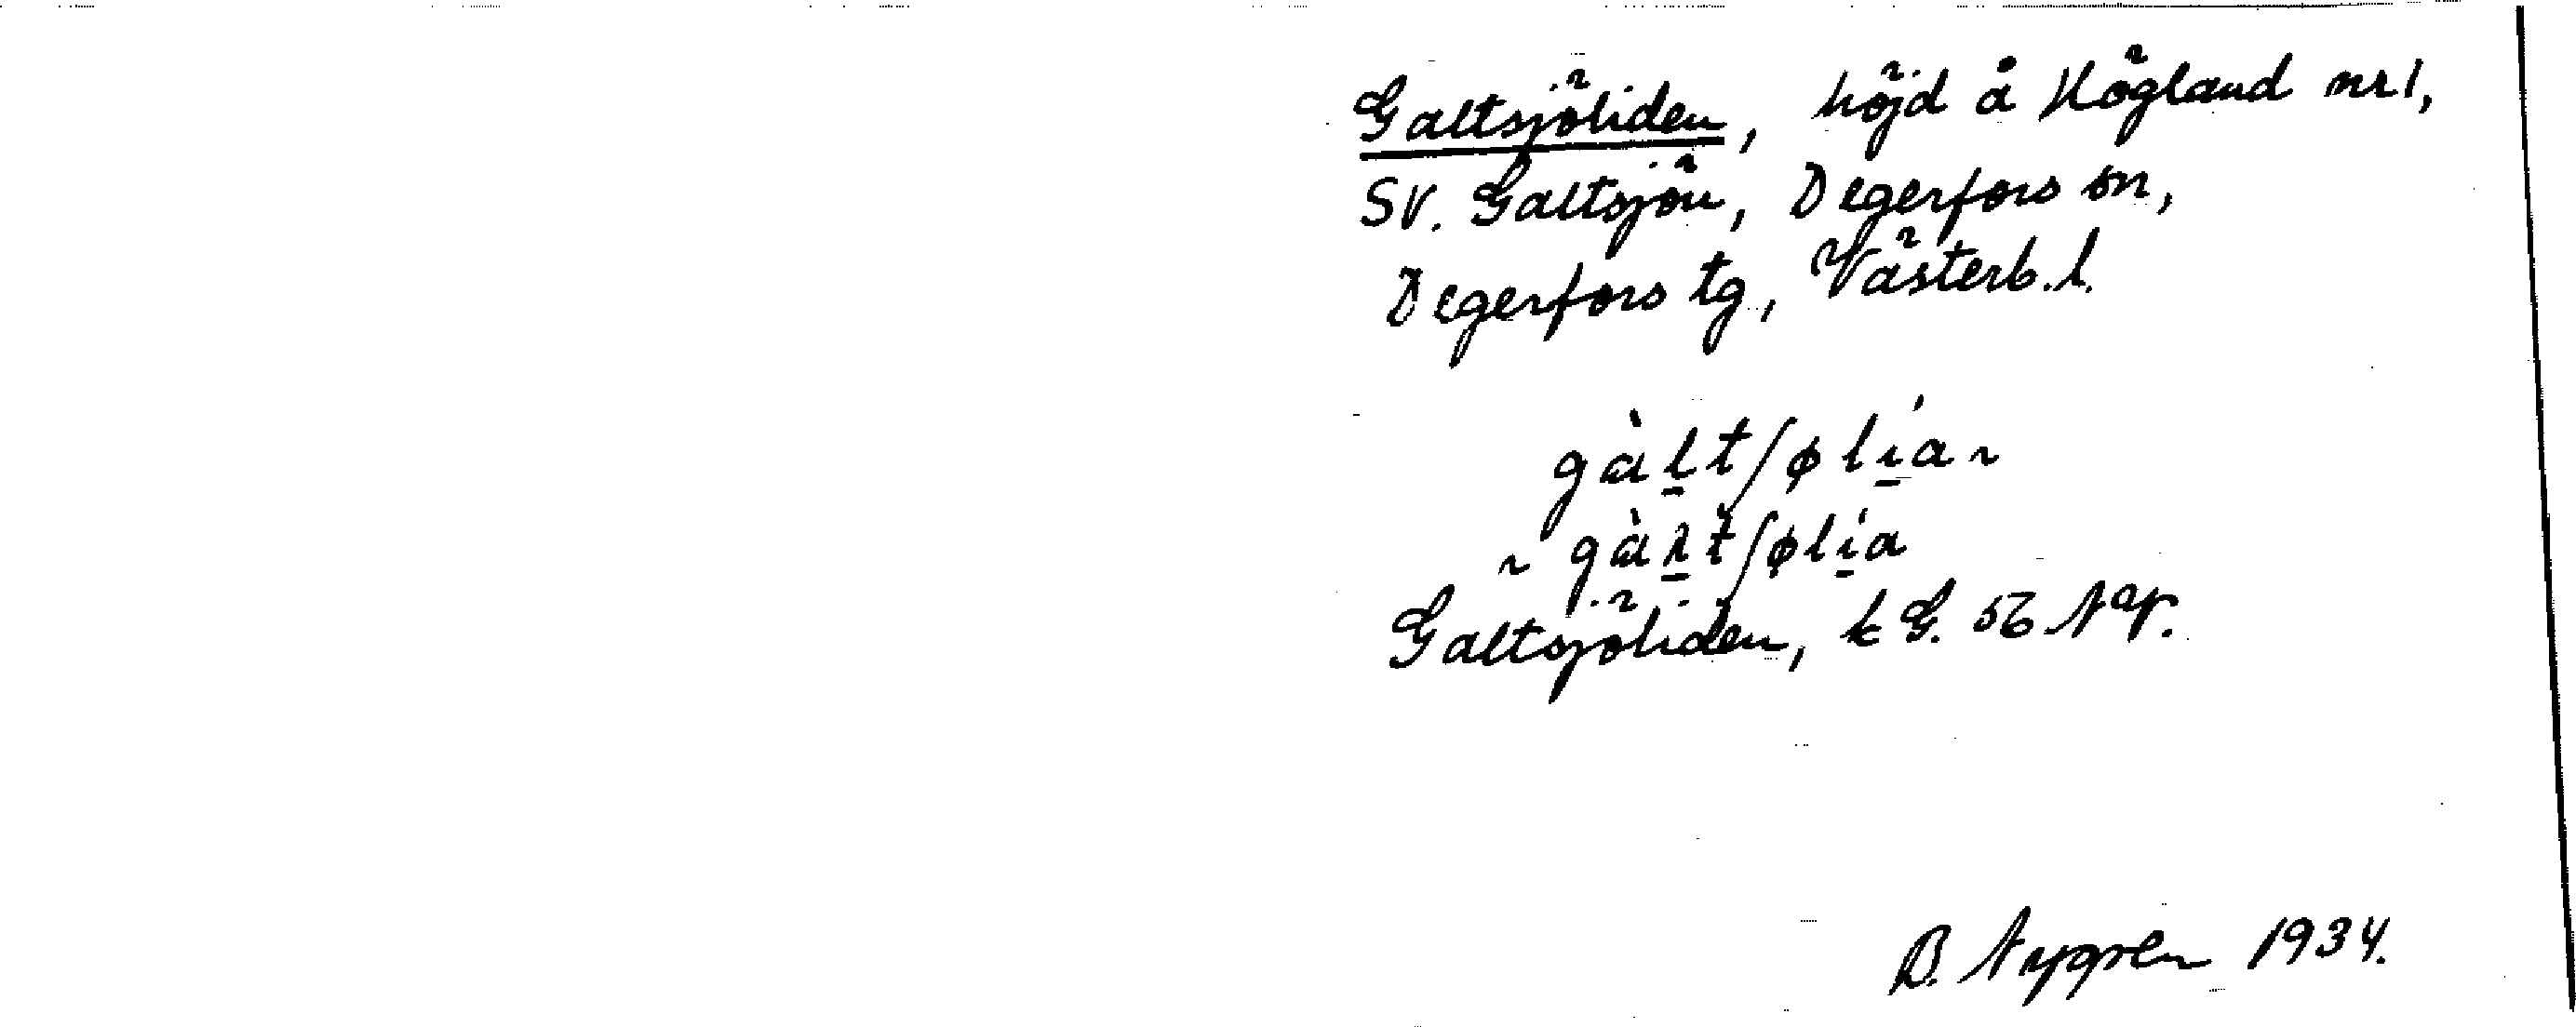 Galtsjöliden, höjd å Högland nr 1,
SV. Galtsjön, Degerfors sn,
Degerfors tg, Västerb. l.
gàl̠tʃølí̠a ~
~ gàɽ̠tʃølí̠a
Galtsjöliden, k G. 56
B. Nygren 1934.